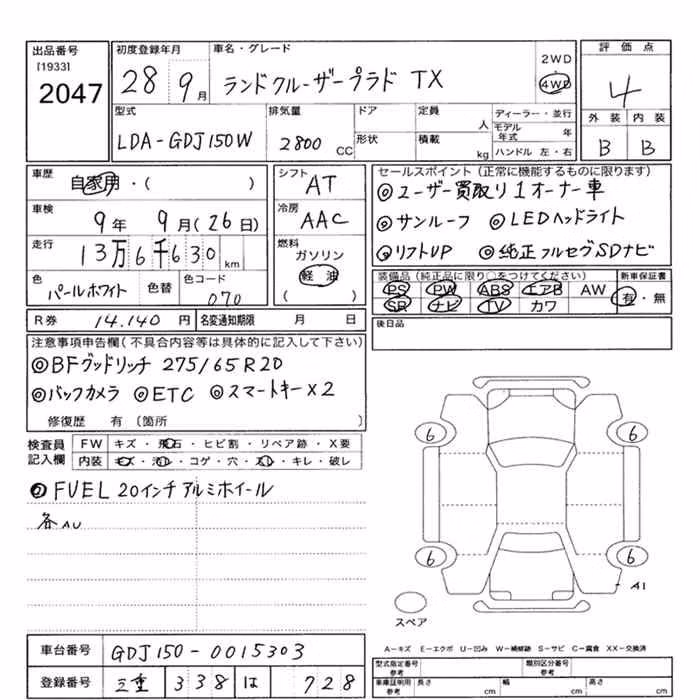 出品番号
[1933]
2047
初度登録年月
28 9月
車名・グレード
ランドクルーザープラド TX
2WD
4WD
評価点
4
外装 内装
B B
型式
LDA-GDJ150W
排気量
2800 CC
ドア
形状
定員
人
積載
kg
ディーラー・並行
モデル年式 年
ハンドル 左・右
車歴
自家用・( )
車検
9年 9月(26日)
走行
13万6千630km
色
パールホワイト
色替
色コード
070
シフト
AT
冷房
AAC
燃料
ガソリン
軽油
( )
セールスポイント(正常に機能するものに限ります)
◎ユーザー買取り1オーナー車
◎サンルーフ ◎LEDヘッドライト
◎リフトUP ◎純正フルセグSDナビ
装備品(純正品に限り○をつけてください)
PS PW ABS エアB AW
SR ナビ TV カワ
新車保証書
有・無
R券 14.140円
名変通知期限 月 日
後日品
注意事項申告欄(不具合内容等は具体的に記入して下さい)
◎BFグッドリッチ 275/65R20
◎バックカメラ ◎ETC ◎スマートキー×2
修復歴 有〔箇所 〕
検査員記入欄
FW キズ・飛石・ヒビ割・リペア跡・X要
内装 キズ・汚レ・コゲ・穴・スレ・キレ・破レ
◎FUEL 20インチアルミホイール
各AU
6 6
6 6
A1
スペア
A-キズ E-エクボ U-凹み W-補修跡 S-サビ C-腐食 XX-交換済
車台番号 GDJ150-0015303
登録番号 三重 338 は 728
型式指定番号 参考
類別区分番号 参考
車庫証明用 参考 長さ cm 幅 cm 高さ cm